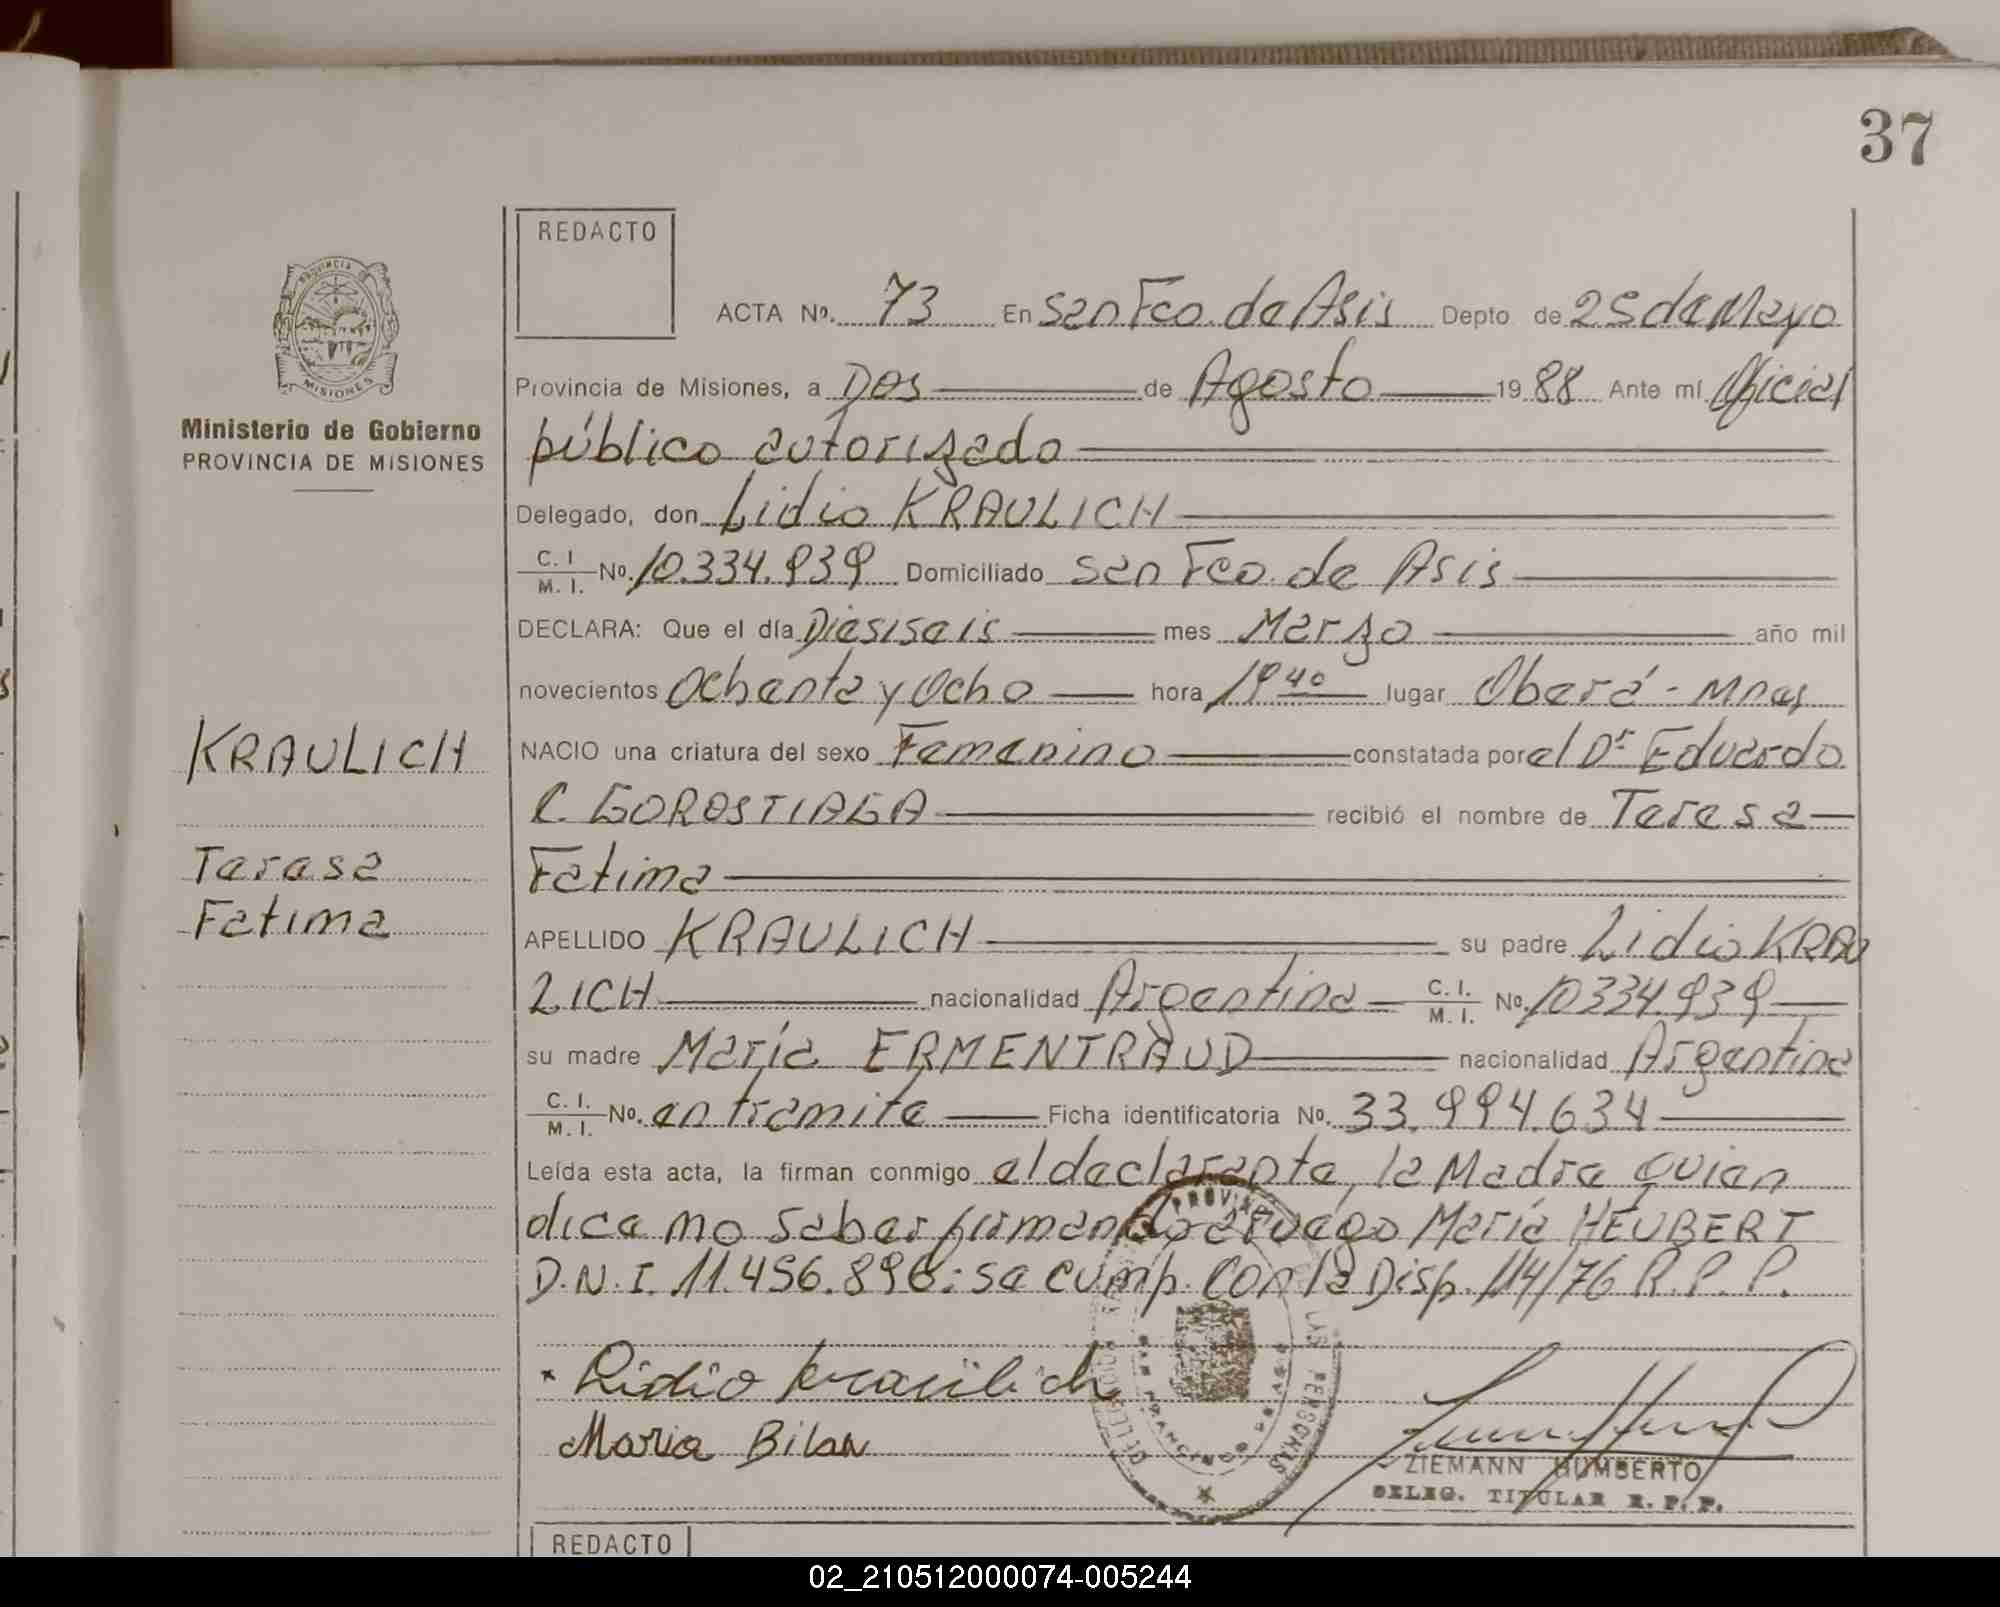 37
REDACTO
ACTA Nº. 73 En San Fco. de Asis Depto de 25 de Mayo
Provincia de Misiones, a Dos de Agosto 19 88 Ante mí Oficial
público autorizado
Delegado, don Lidio KRAULICH
C. I. / M. I. Nº. 10.334.939 Domiciliado San Fco. de Asis
DECLARA: Que el día Diesiseis mes Marzo año mil
novecientos Ochenta y Ocho hora 19 40 lugar Oberá - Mnes
NACIO una criatura del sexo Femenino constatada por el Dr Eduardo
C. GOROSTIAGA recibió el nombre de Teresa
Fatima
APELLIDO KRAULICH su padre Lidio KRAU
LICH nacionalidad Argentina C. I. / M. I. Nº. 10334.939
su madre María ERMENTRAUD nacionalidad Argentina
C. I. / M. I. Nº. en tramite Ficha identificatoria Nº. 33.994.634
Leída esta acta, la firman conmigo el declarante, la Madre quien
dice no saber firmando a ruego María HEUBERT
D.N.I. 11.456.896: se cump. con la Disp. 114/76 R.P.P.
Lidio Kraulich
Maria Bilan
ZIEMANN HUMBERTO
DELEG. TITULAR R. P. P.
PROVINCIA DE
MISIONES
Ministerio de Gobierno
PROVINCIA DE MISIONES
KRAULICH
Teresa
Fatima
LAS PERSONAS
SAN FRANCISCO DE ASIS
REDACTO
02_210512000074-005244